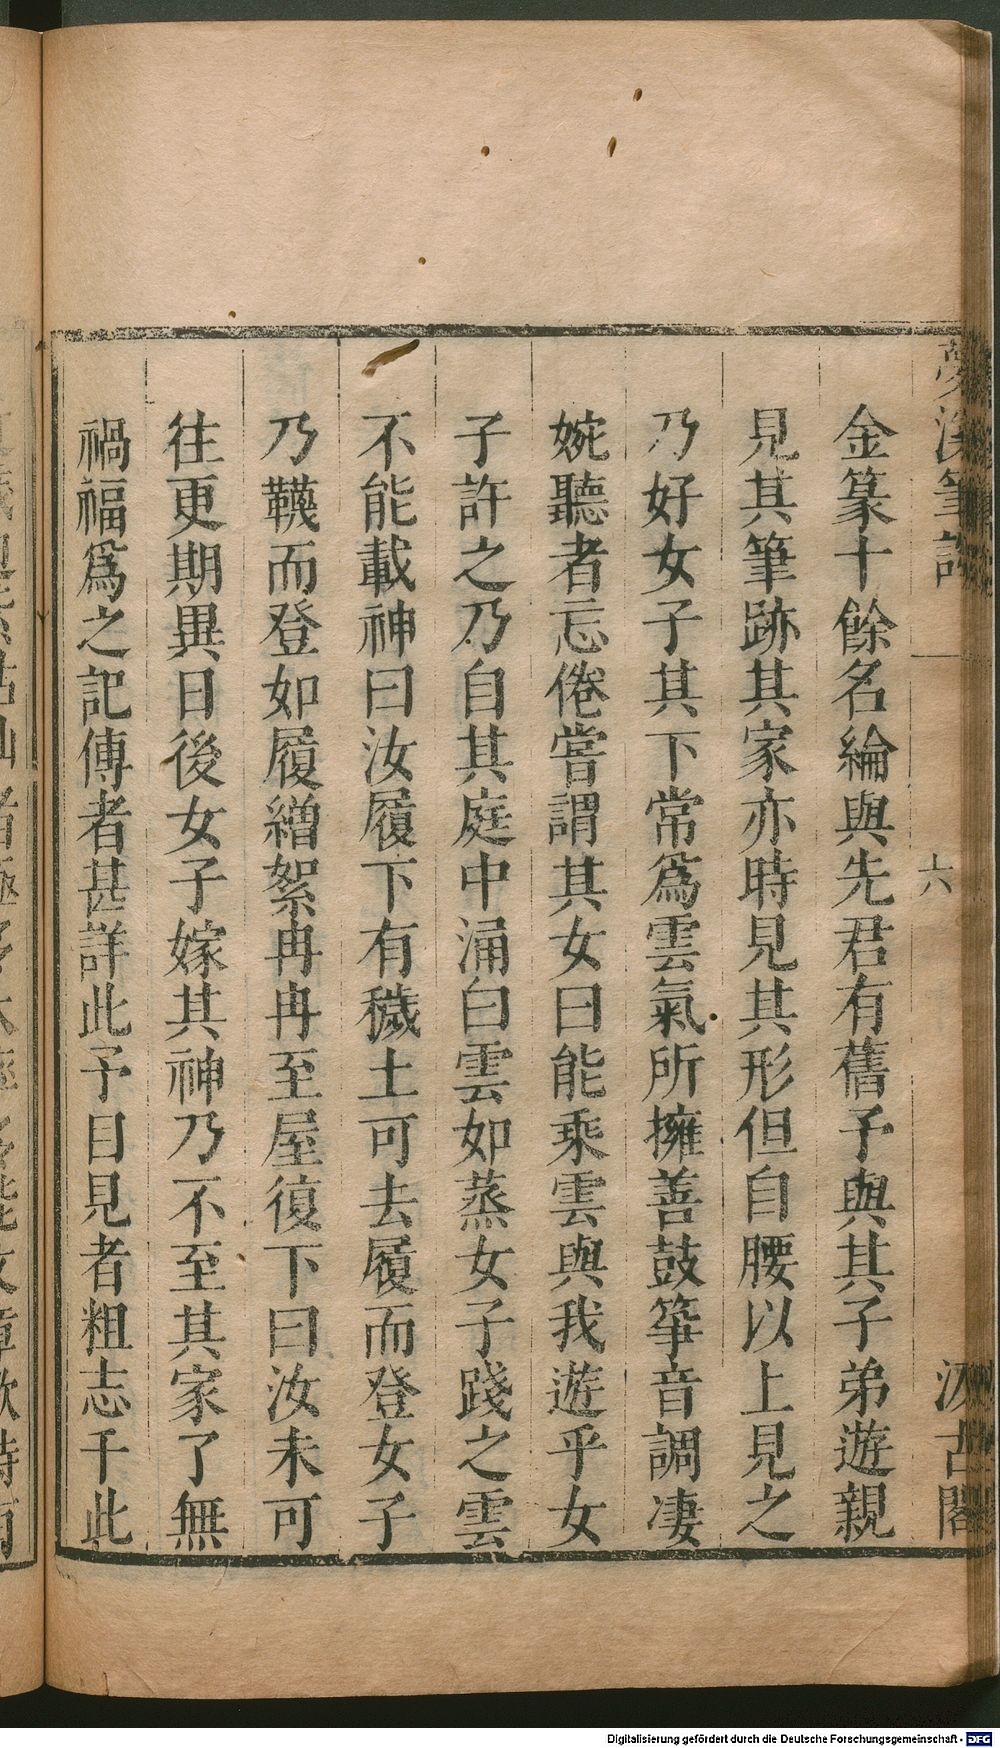 夢溪筆談
六
汲古閣
金篆十餘名綸與先君有舊予與其子弟遊親
見其筆跡其家亦時見其形但自腰以上見之
乃好女子其下常爲雲氣所擁善鼓筝音調凄
婉聽者忘倦嘗謂其女曰能乘雲與我遊乎女
子許之乃自其庭中涌白雲如蒸女子踐之雲
不能載神曰汝履下有穢土可去履而登女子
乃韈而登如履繒絮冉冉至屋復下曰汝未可
往更期異日後女子嫁其神乃不至其家了無
禍福爲之記傳者甚詳此予目見者粗志于此
Digitalisierung gefördert durch die Deutsche Forschungsgemeinschaft - DFG